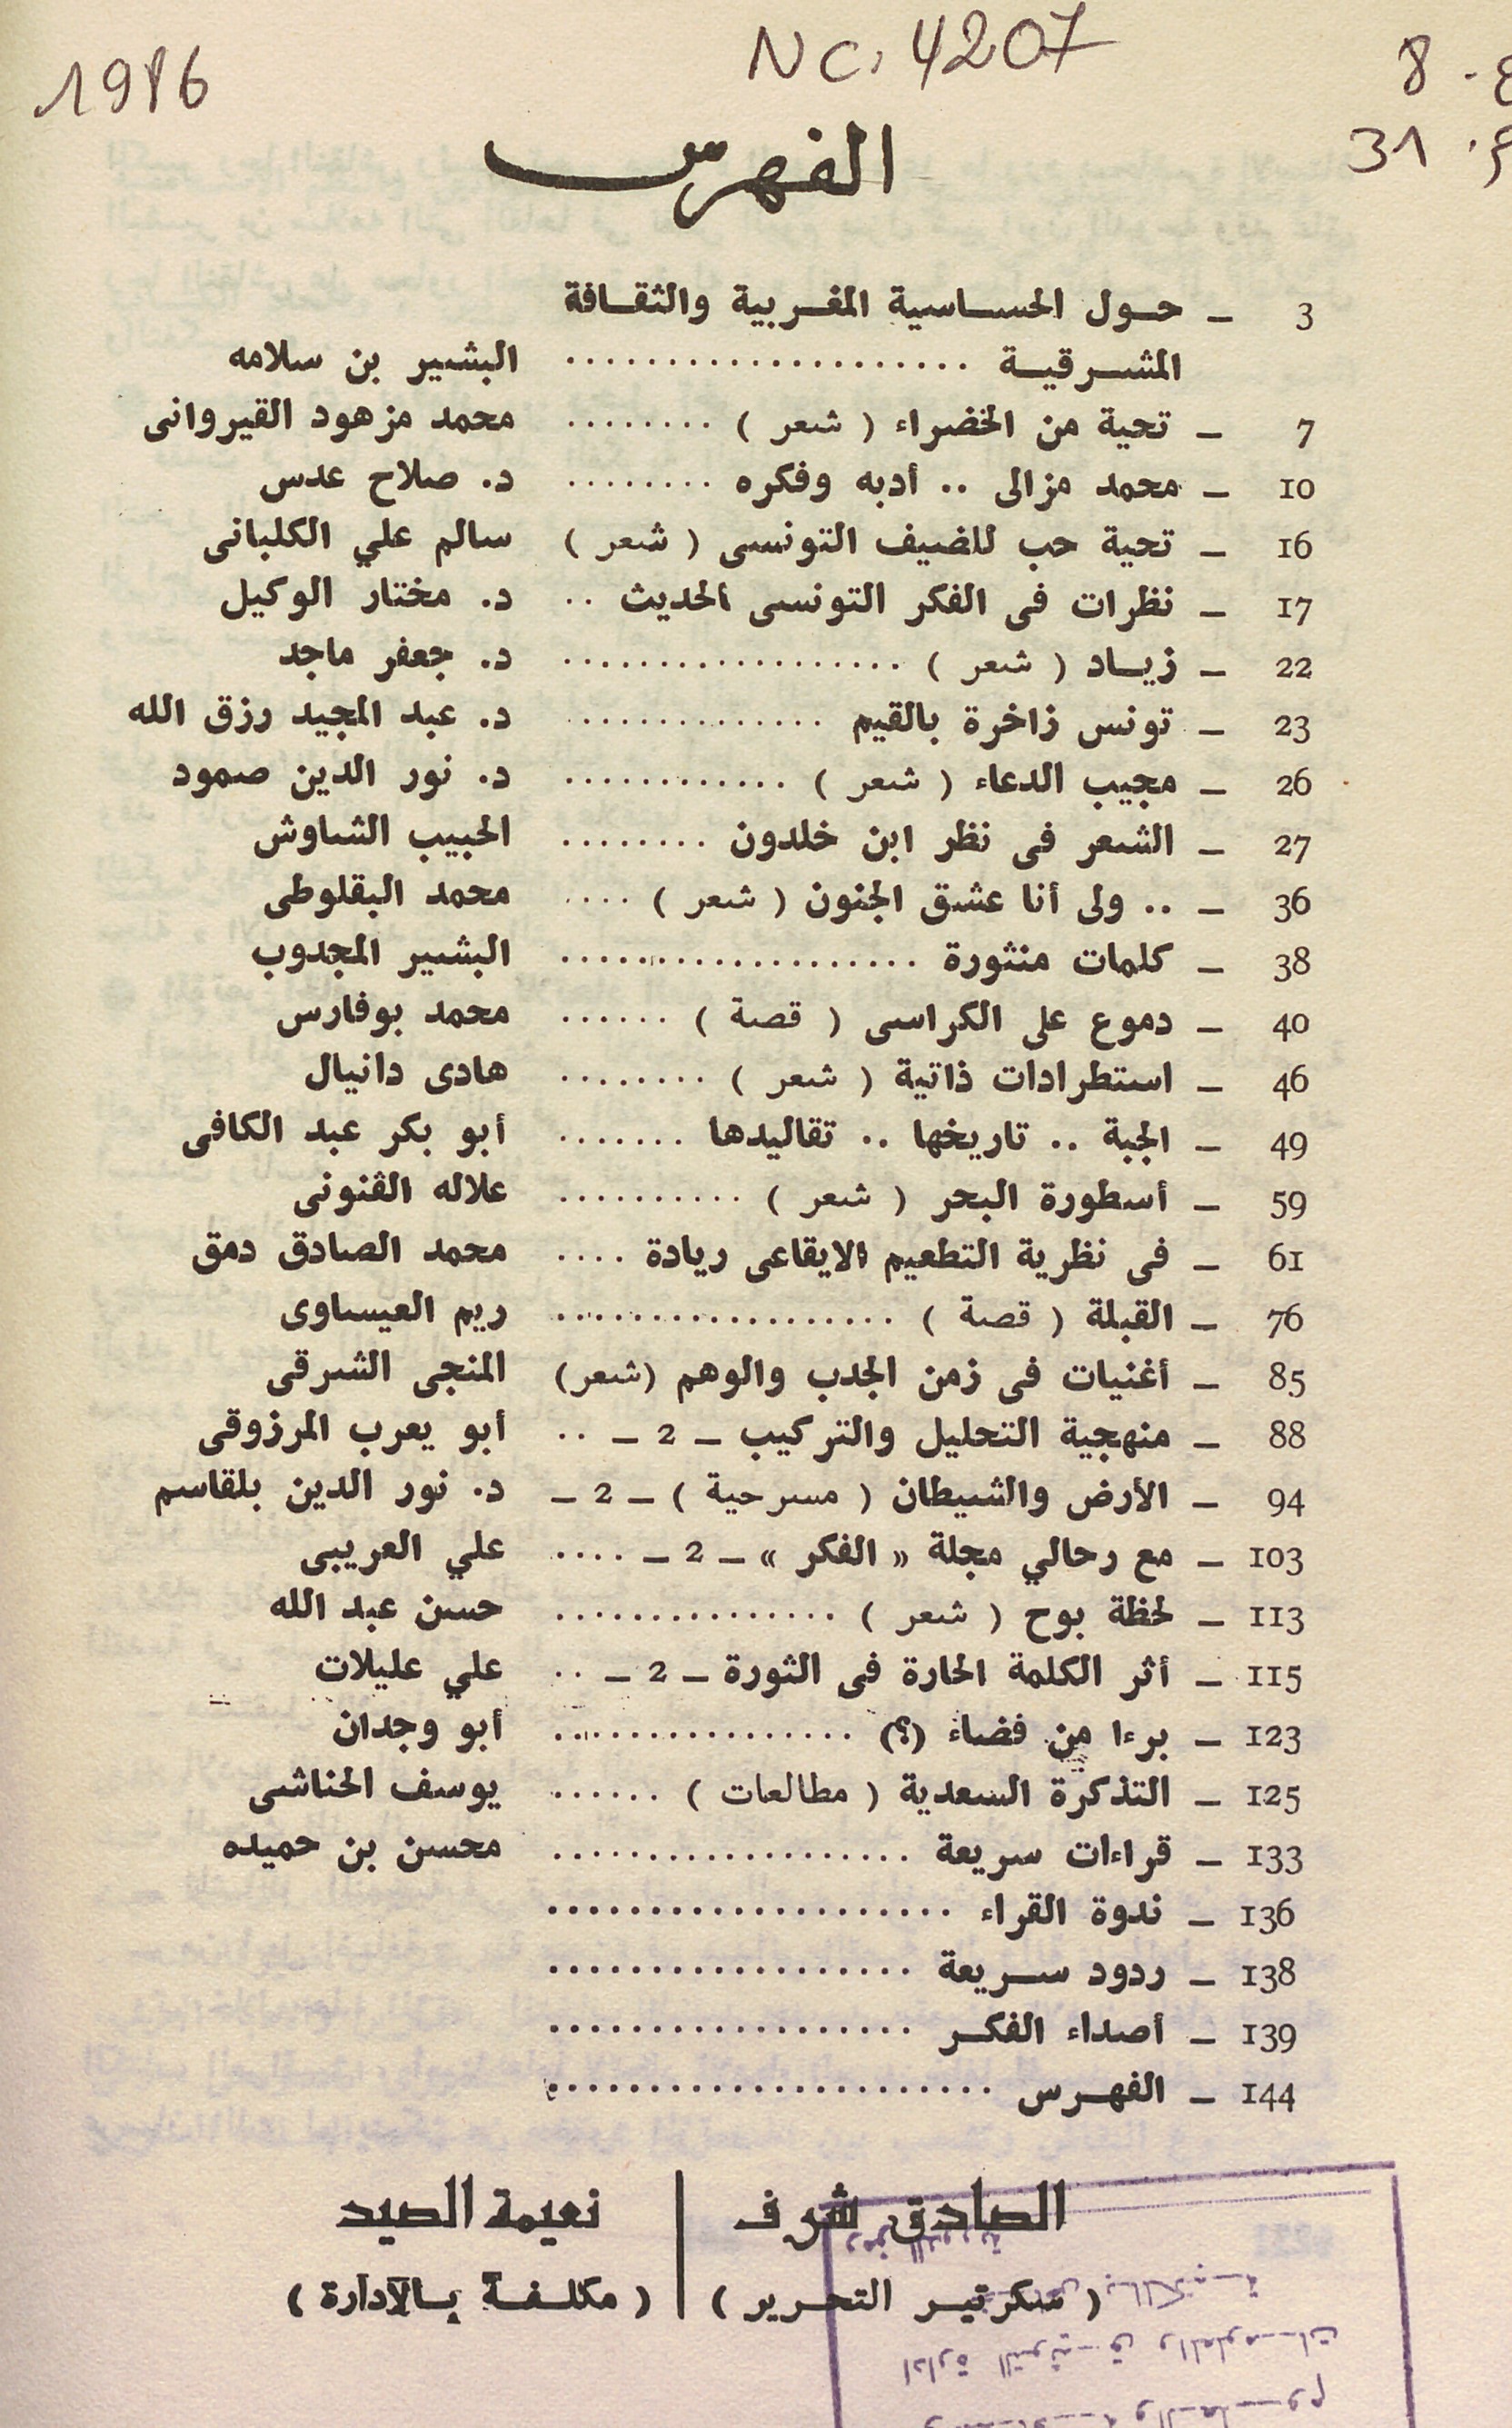 NC. 4207
1986
ع. 8
م. 31
الفهرس
3 ـ حـول الحسـاسية المغـربية والثقـافة
المشـرقيـة .................... البشير بن سلامه
7 ـ تحية من الخضراء ( شعر ) ........ محمد مزهود القيروانى
10 ـ محمد مزالى .. أدبه وفكره ........ د. صلاح عدس
16 ـ تحية حب للضيف التونسى ( شعر ) سالم علي الكلبانى
17 ـ نظرات فى الفكر التونسى الحديث .. د. مختار الوكيل
22 ـ زيـاد ( شعر ) ................. د. جعفر ماجد
23 ـ تونس زاخرة بالقيم ............. د. عبد المجيد رزق الله
26 ـ مجيب الدعاء ( شعر ) ............ د. نور الدين صمود
27 ـ الشعر فى نظر ابن خلدون ........ الحبيب الشاوش
36 ـ .. ولى أنا عشق الجنون ( شعر ) .... محمد البقلوطى
38 ـ كلمات منثورة .................. البشير المجدوب
40 ـ دموع على الكراسى ( قصة ) ...... محمد بوفارس
46 ـ استطرادات ذاتية ( شعر ) ........ هادى دانيال
49 ـ الجبة .. تاريخها .. تقاليدها ....... أبو بكر عبد الكافى
59 ـ أسطورة البحر ( شعر ) .......... علاله القنونى
61 ـ فى نظرية التطعيم الايقاعى ريادة .... محمد الصادق دمق
76 ـ القبلة ( قصة ) ................. ريم العيساوى
85 ـ أغنيات فى زمن الجدب والوهم (شعر) المنجى الشرقى
88 ـ منهجية التحليل والتركيب ـ 2 ـ .. أبو يعرب المرزوقى
94 ـ الأرض والشيطان ( مسرحية ) ـ 2 ـ د. نور الدين بلقاسم
103 ـ مع رحالي مجلة « الفكر » ـ 2 ـ .... علي العريبى
113 ـ لحظة بوح ( شعر ) .............. حسن عبد الله
115 ـ أثر الكلمة الحارة فى الثورة ـ 2 ـ .. علي عليلات
123 ـ برءا من فضاء (؟) ............... أبو وجدان
125 ـ التذكرة السعدية ( مطالعات ) ...... يوسف الحناشى
133 ـ قراءات سريعة .................. محسن بن حميده
136 ـ ندوة القراء ....................
138 ـ ردود سـريعة ..................
139 ـ أصداء الفكـر ..................
144 ـ الفهـرس ......................
الصادق شرف
( سكرتيـر التحـرير )
نعيمة الصيد
( مكلـفـة بـالادارة )
ادارة التوثيـق والمعلومـات